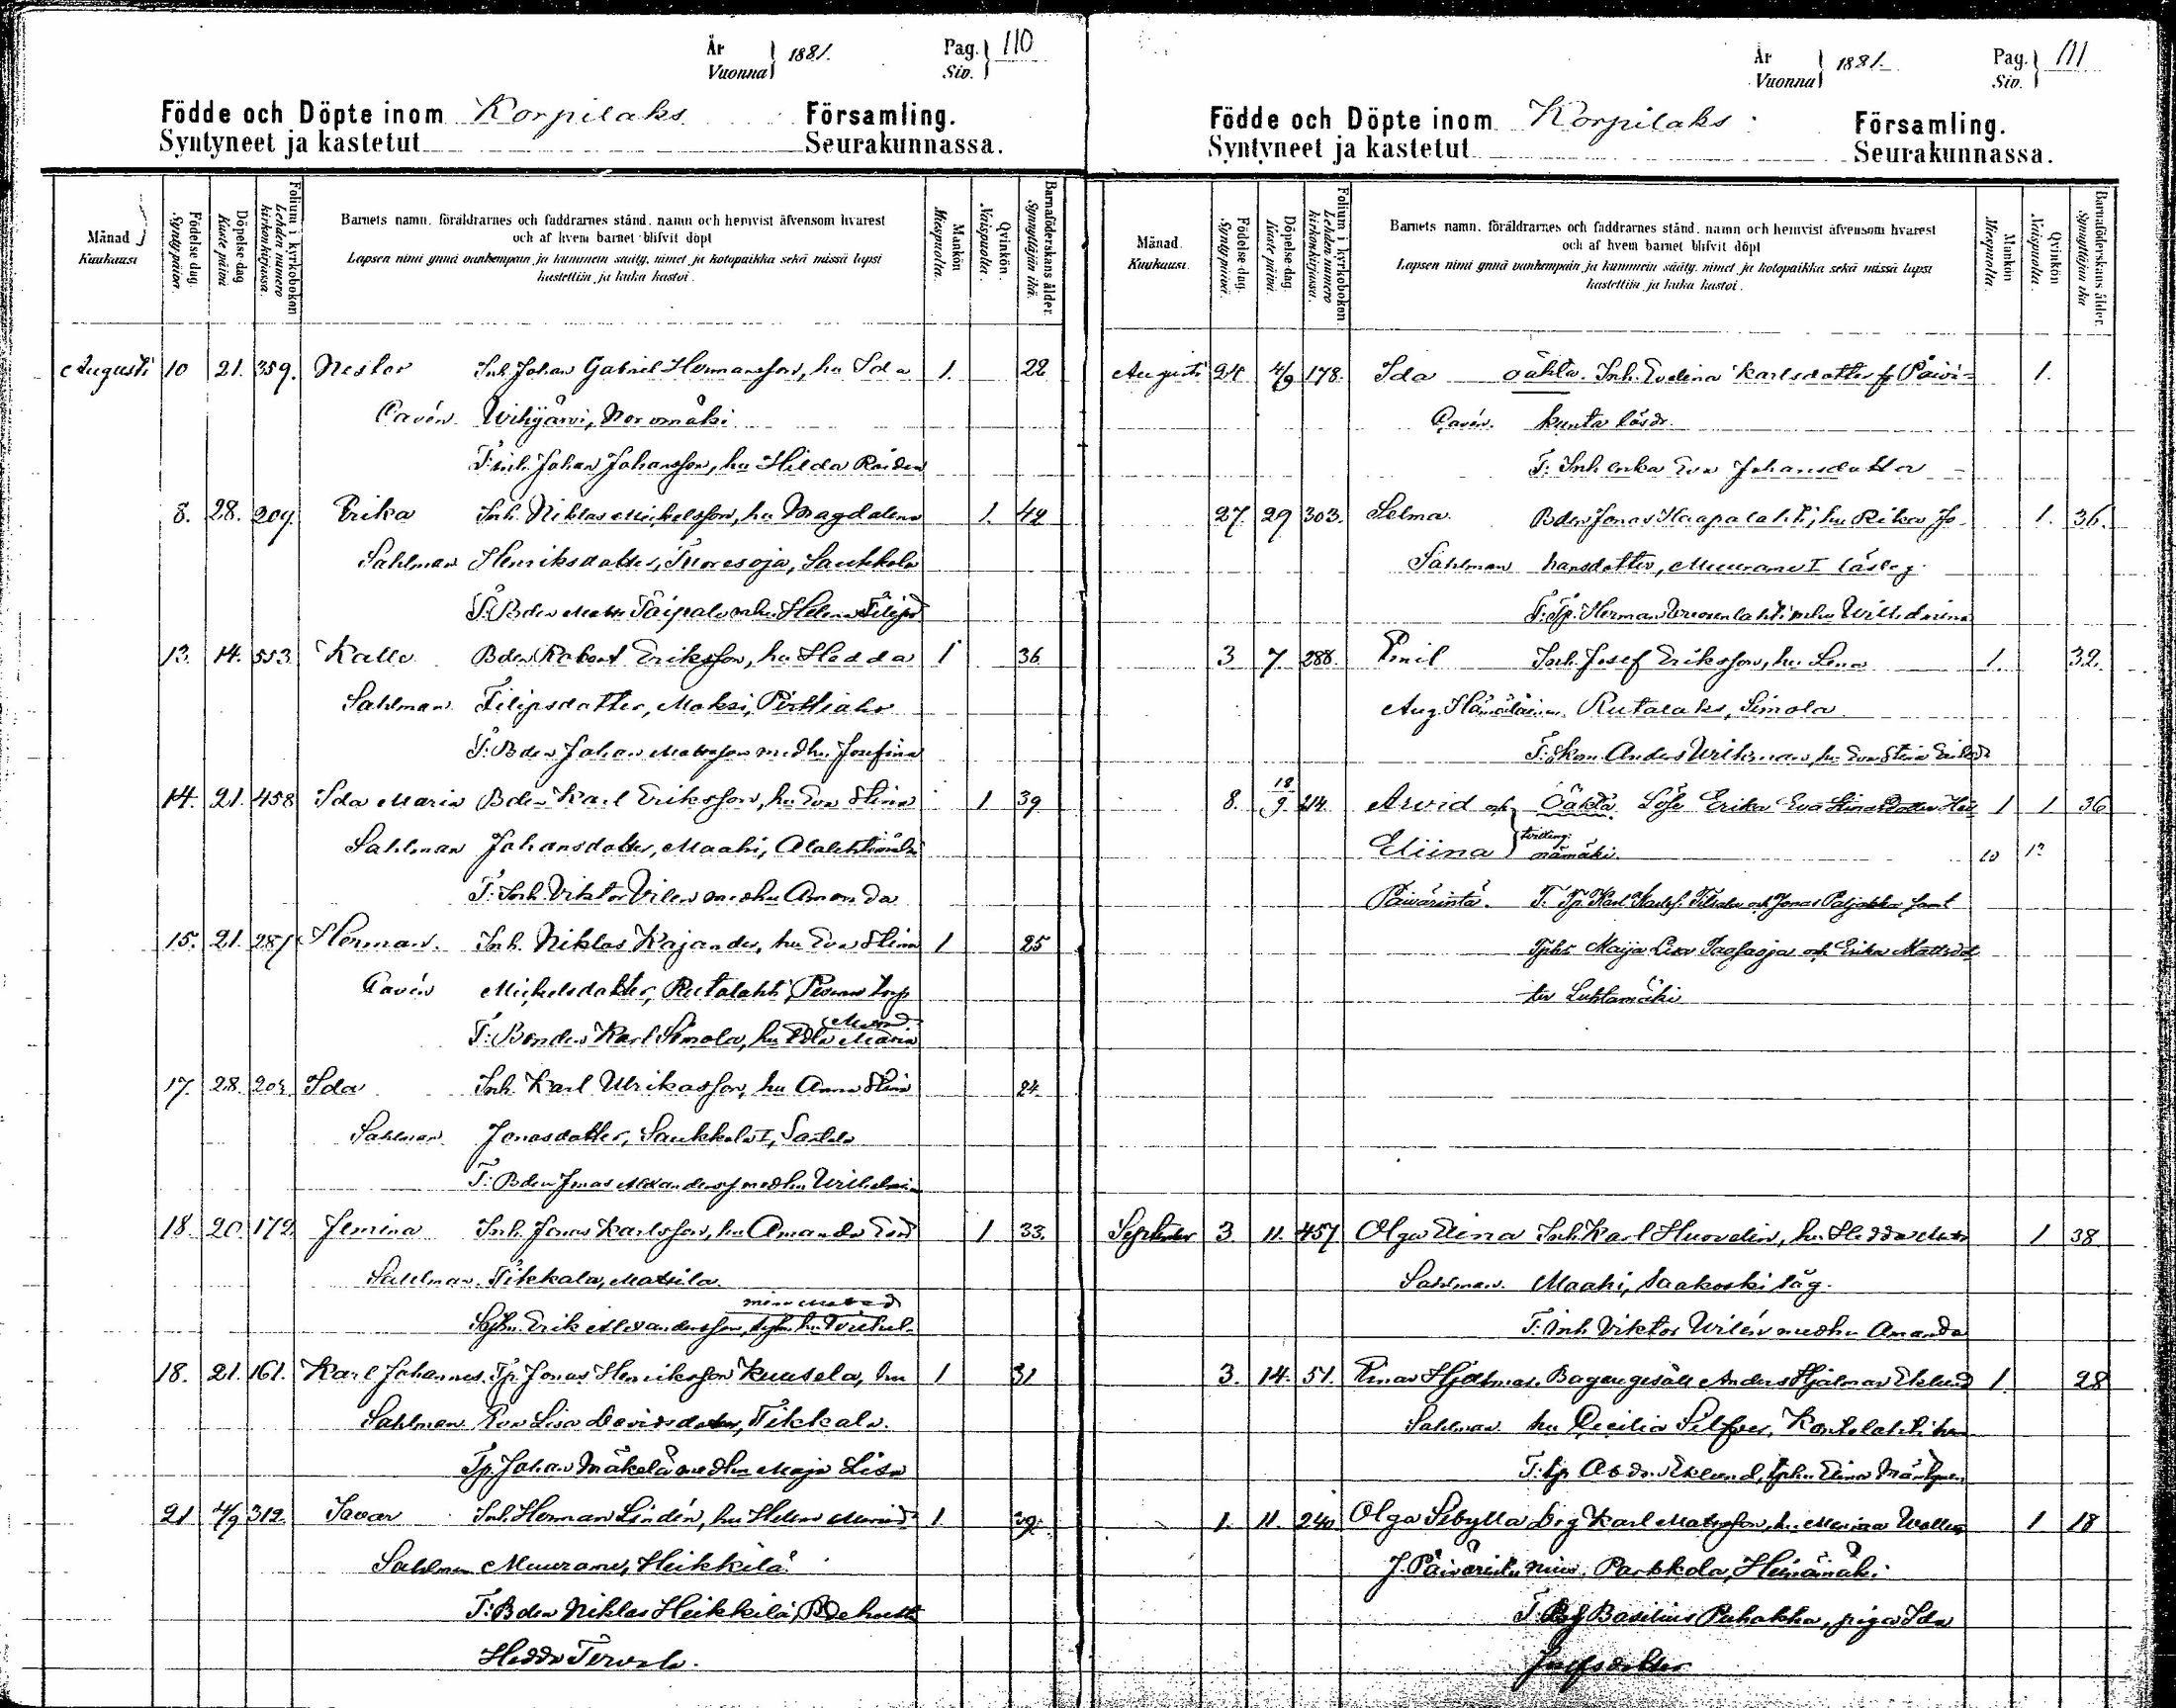 År
Vuonna } 1881.
Pag.
Siv. } 110
Födde och Döpte inom Korpilaks Församling.
Syntyneet ja kastetut Seurakunnassa.
Månad
Kuukausi
Födelse dag.
Syntypäivä.
Döpelse dag
Kaste päivä
Folium i kyrkoboken
Lehden numero kirkonkirjassa.
Barnets namn, föräldrarnes och faddrarnes stånd, namn och hemvist äfvensom hvarest
och af hvem barnet blifvit döpt
Lapsen nimi ynnä vanhempain ja kummein sääty, nimet ja kotopaikka sekä missä lapsi
kastettiin ja kuka kastoi.
Mankön
Miespuolia.
Qvinkön
Naispuolia.
Barnaföderskans ålder.
Synnyttäjän ikä.
Augusti 10 21. 359. Nestor Inh. Johan Gabriel Hermansson, hu Ida 1. 22
Cavén. Wihijärvi, Noromäki
F: inh. Johan Johansson, hu Hilda
8. 28. 209. Erika Inh. Niklas Mickelsson, hu Magdalena 1. 42
Sahlman Henriksdotter, Tuoresoja, Saukkola
F: Bden Matts Taipale mhu Helena Filipsd
13. 14. 553. Kalle Bden Robert Eriksson, hu Hedda 1 36
Sahlman Filipsdotter, Moksi, Pirttiaho
F: Bden Johan Matsson med hu Josefina
14. 21. 458 Ida Maria Bden Karl Eriksson, hu Eva Stina 1 39
Sahlman Johansdotter, Maahi,
F: Inh. Viktor Vilen med hu Amanda
15. 21. 287 Herman. Inh. Niklas Kajander, hu Eva Stina 1 25
Cavén Mickelsdotter, Rutalahti, torp
F: Bonden Karl Simola, hu Edla Maria
17. 28. 202. Ida Inh. Karl Ulrikasson, hu Anna Stina 24.
Sahlman. Jonasdotter, Saukkola I,
F: Bden Jonas Alexandersf med hu Wilhelmina
18. 20. 172. Jemina Inh. Jonas Karlsson, hu Amanda 1 33.
Sahlman. Tikkala, Mattila.
Erik Alexandersson,
18. 21. 161. Karl Johannes. Tp. Jonas Henriksson Kuusela, hu 1 31
Sahlman Eva Lisa Davidsdotter, Tikkala.
Tp. Johan Mäkelä med hu Maja Lisa
21 4/9 312. Iwar Inh. Herman Lindén, hu Helena 1. 29.
Sahlman Muurame, Heikkilä
F: Bden Niklas Heikkilä,
Hedda Tervala.
År
Vuonna } 1881.
Pag.
Siv. } 111
Födde och Döpte inom Korpilaks Församling.
Syntyneet ja kastetut Seurakunnassa.
Månad.
Kuukausi.
Födelse dag.
Syntypäivä.
Döpelse dag.
Kaste päivä.
Folium i kyrkoboken.
Lehden numero kirkonkirjassa.
Barnets namn, föräldrarnes och faddrarnes stånd, namn och hemvist äfvensom hvarest
och af hvem barnet blifvit döpt
Lapsen nimi ynnä vanhempain ja kummein sääty, nimet ja kotopaikka sekä missä lapsi
kastettiin ja kuka kastoi.
Mankön
Miespuolia.
Qvinkön
Naispuolia.
Barnaföderskans ålder.
Synnyttäjän ikä
Augusti 24. 4/9 178. Ida oäkta. Inh. Evelina Karlsdotter fr Päivi= 1.
Cavén. kunta lösdr.
F: Inh enka Eva Johansdotter
27. 29 303. Selma Bden Jonas Haapalahti, hu Rika Jo- 1. 36.
Sahlman hansdotter, Muurame I
F: Tp. Herman Wuorenlahti mhu Wilhelmina
3 7. 288. Emil Inh. Josef Eriksson, hu Lena 1. 32.
Aug. Hämäläinen. Rutalaks, Simola
F: Anders Wikman, hu Eva Stina
8. 18/9. 214. Arvid och Oäkta Lösf Erika Eva Stinasdotter Hei 1 1 36
Eliina } tvilling: nämäki. 10 12
Päivärinta. F. Tp. Karl Karlsf. och Jonas Paljakka samt
Tphu Maija Lisa och Erika Mattsdot
ter Luhtamäki
September 3. 11. 457 Olga Elina Inh. Karl Huovelin, hu Hedda 1 38.
Sahlman. Maahi, Saakoski såg.
F: Inh Viktor Wilén med hu Amanda
3. 14. 51. Einar Hjalmar. Bagaregesäll Anders Hjalmar Eklund 1. 28
Sahlman. hu Cecilia Silfver,
F: Tp Eklund, hu
1. 11. 240 Olga Sibylla Drg Karl Matsson, hu 1 18
J. Päivärinta Parkkola, Heinämäki.
F: Basilius Puhakka, piga Ida
Josefsdotter